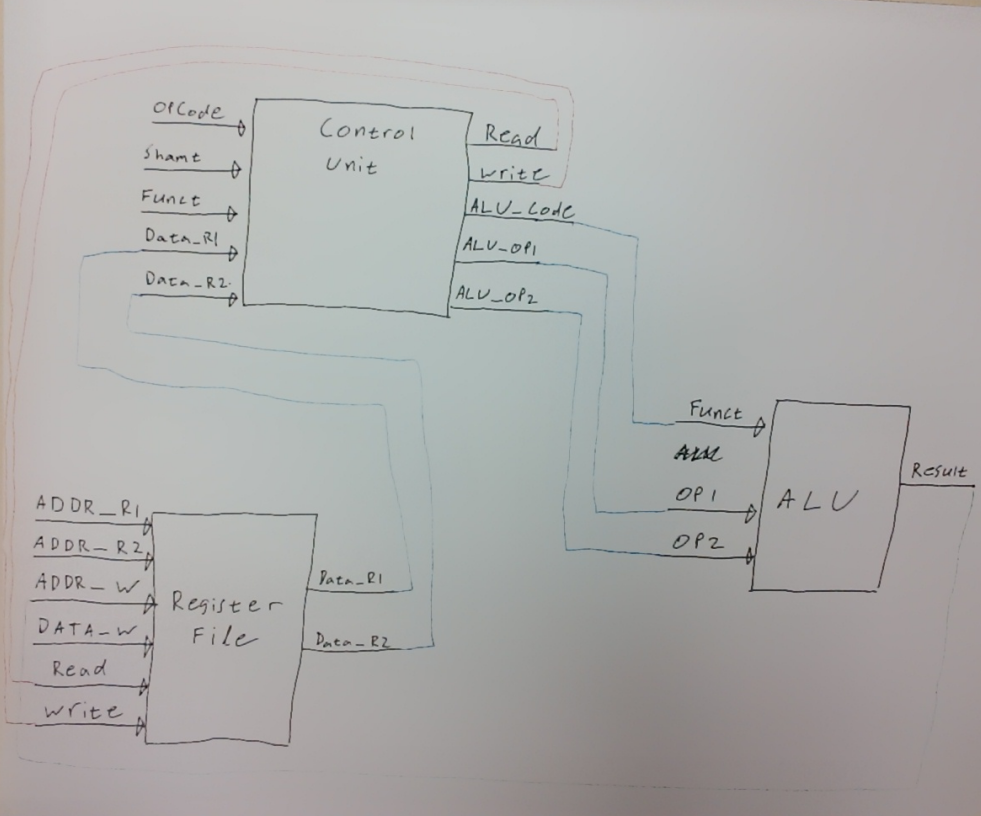 OPCode
Shamt
Funct
Data_R1
Data_R2
Control
Unit
Read
write
ALU_Code
ALU_OP1
ALU_OP2
Funct
OP1
OP2
ALU
Result
ADDR_R1
ADDR_R2
ADDR_W
DATA_W
Read
write
Register
File
Data_R1
Data_R2